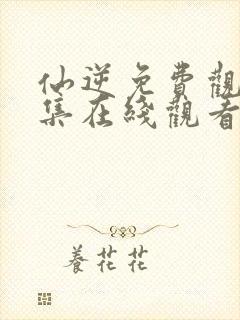 仙逆免費觀
集在綫觀看
養花花